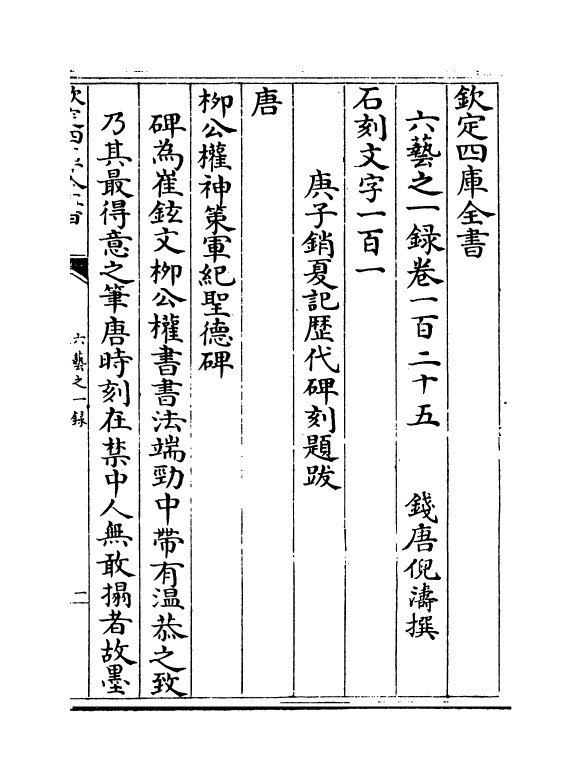 欽定四庫全書
六藝之一録卷一百二十五　　錢唐倪濤撰
石刻文字一百一
庚子銷夏記歴代碑刻題跋
唐
柳公權神策軍紀聖德碑
碑為崔鉉文柳公權書書法端勁中帶有温恭之致
乃其最得意之筆唐時刻在禁中人無敢搨者故墨
六藝之一録